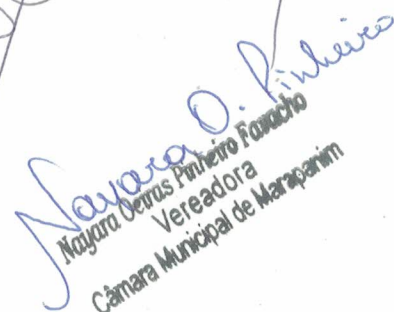 Nayara O. Pinheiro
Nayara Oeiras Pinheiro Favacho
Vereadora
Câmara Municipal de Marapanim